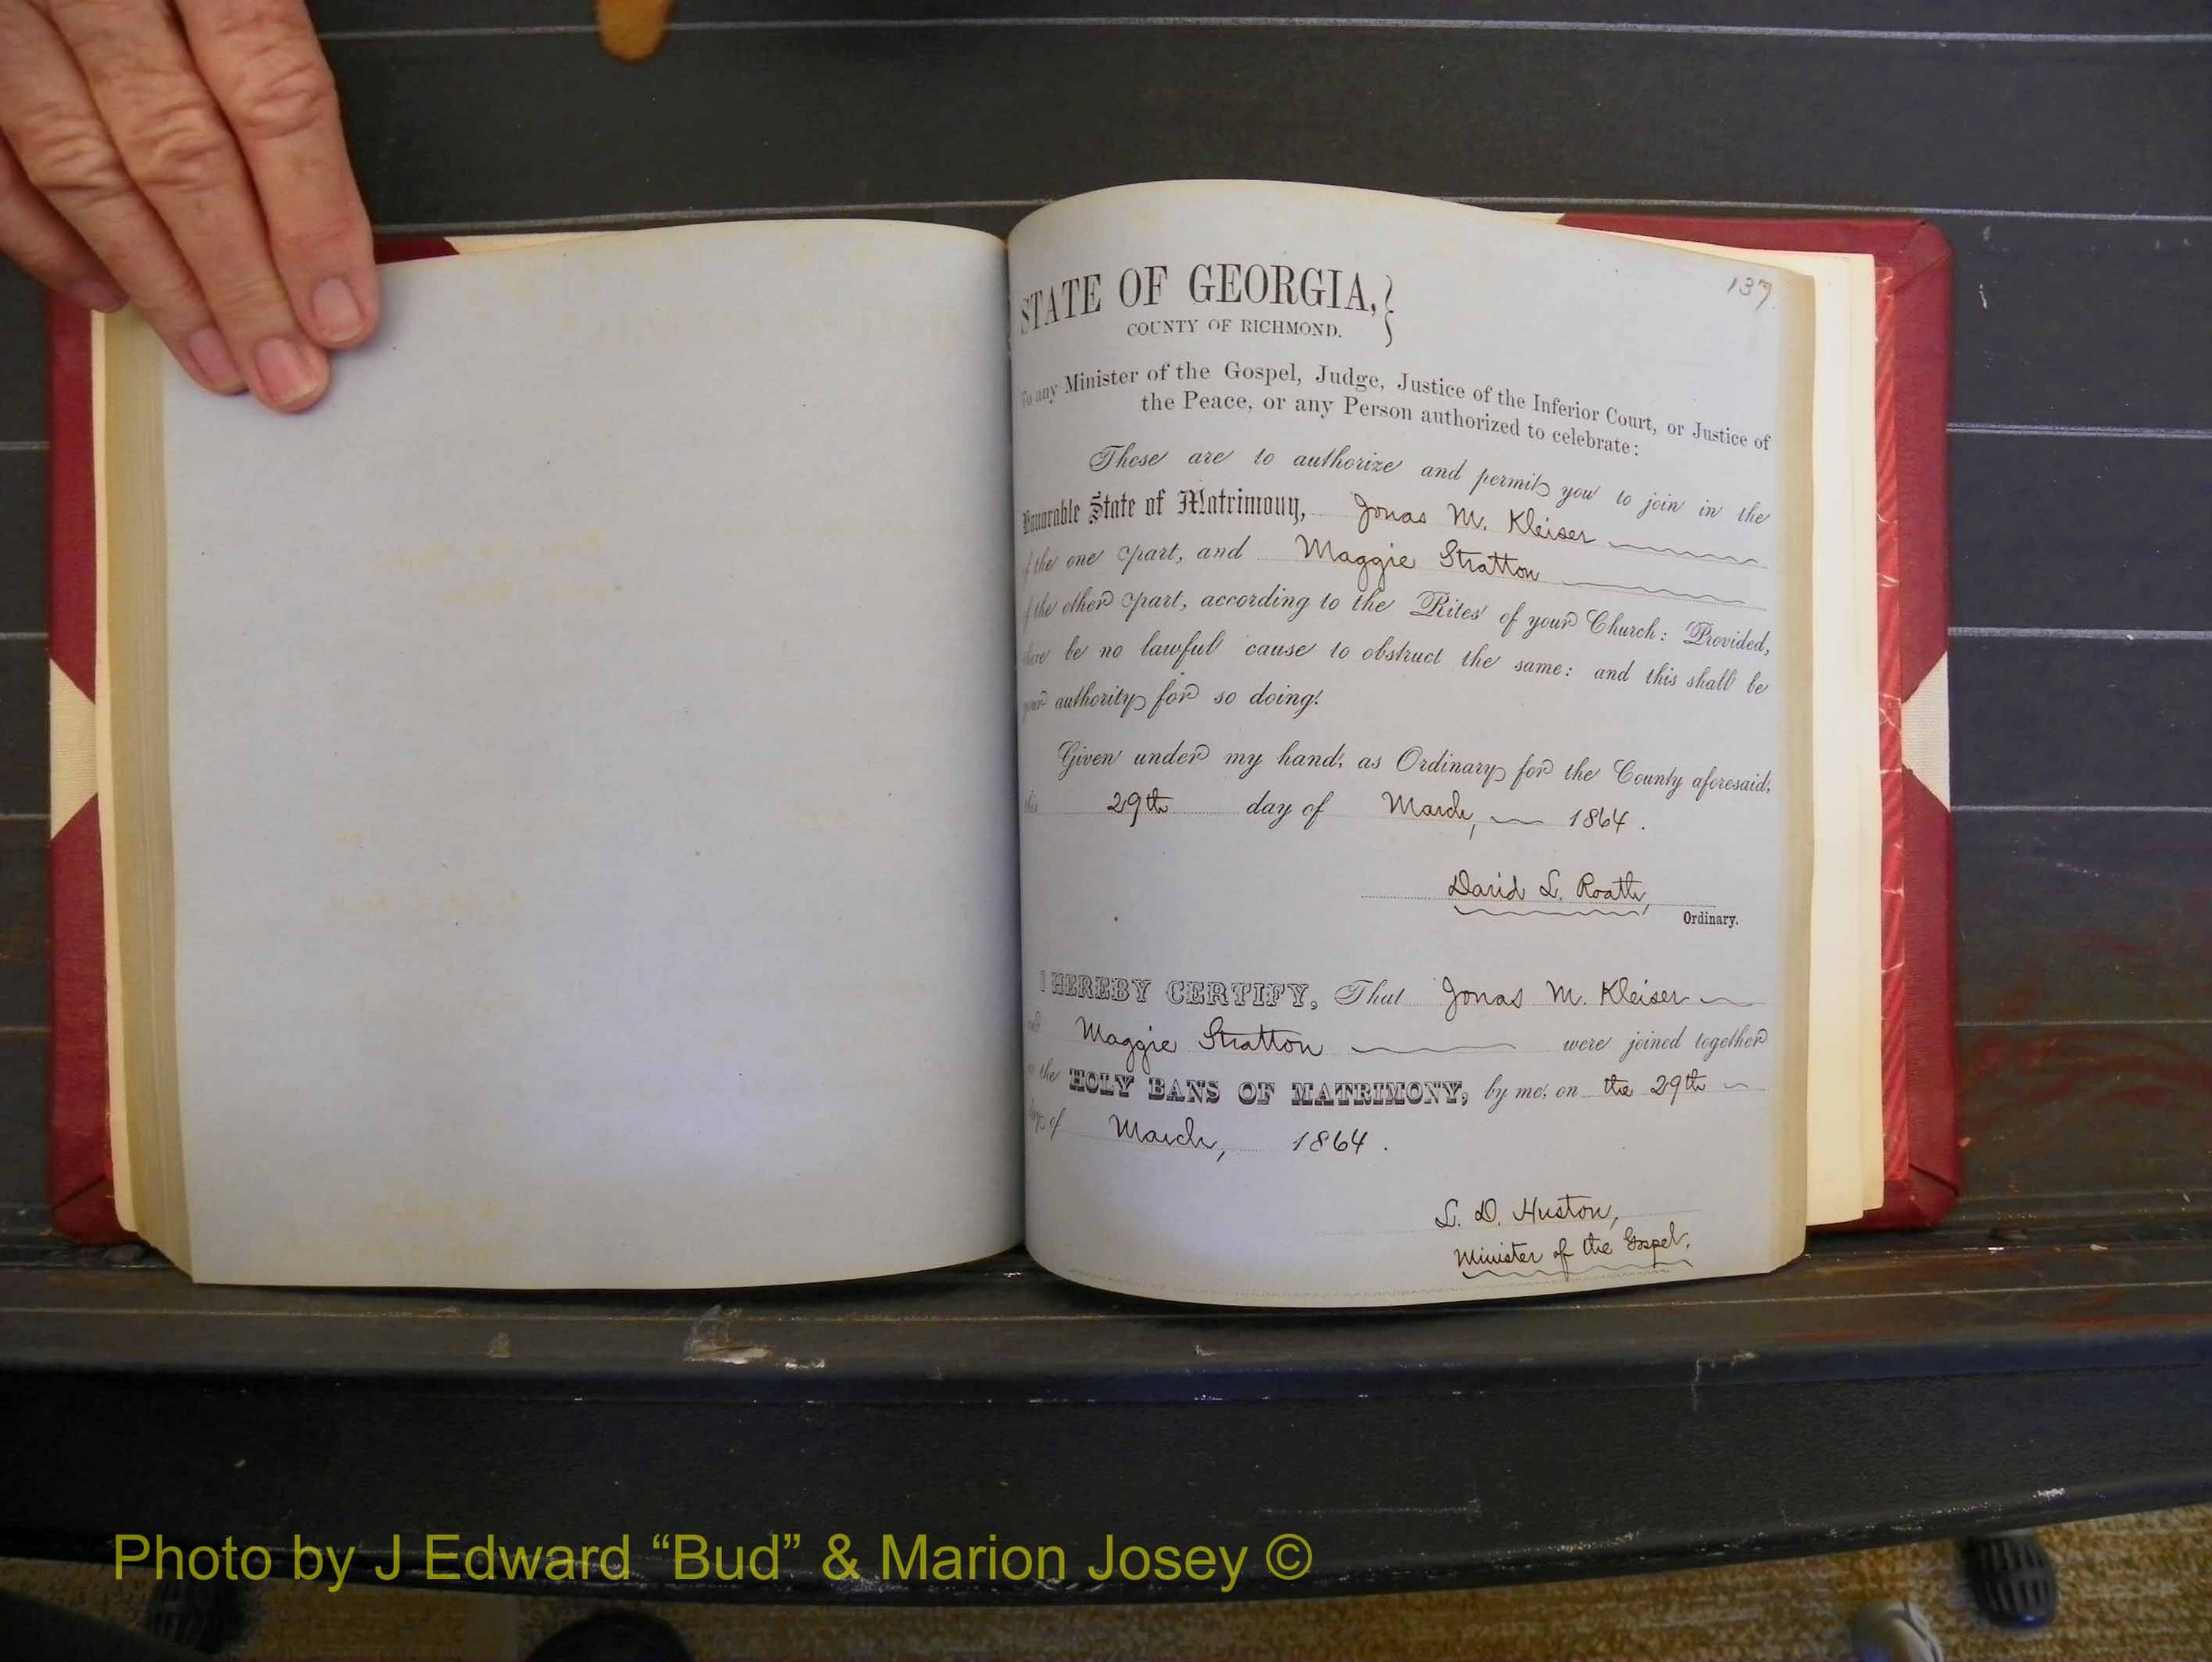 137
STATE OF GEORGIA,
COUNTY OF RICHMOND.
To any Minister of the Gospel, Judge, Justice of the Inferior Court, or Justice of
the Peace, or any Person authorized to celebrate:
These are to authorize and permit you to join in the
Honorable State of Matrimony, Jonas M. Kleiser
of the one part, and Maggie Stratton
of the other part, according to the Rites of your Church: Provided,
there be no lawful cause to obstruct the same: and this shall be
your authority for so doing.
Given under my hand, as Ordinary for the County aforesaid,
this 29th day of March, 1864.
David L. Roath,
Ordinary.
I HEREBY CERTIFY, That Jonas M. Kleiser
and Maggie Stratton were joined together
in the HOLY BANS OF MATRIMONY, by me, on the 29th
day of March, 1864.
L. D. Huston,
Minister of the Gospel.
Photo by J Edward “Bud” & Marion Josey ©